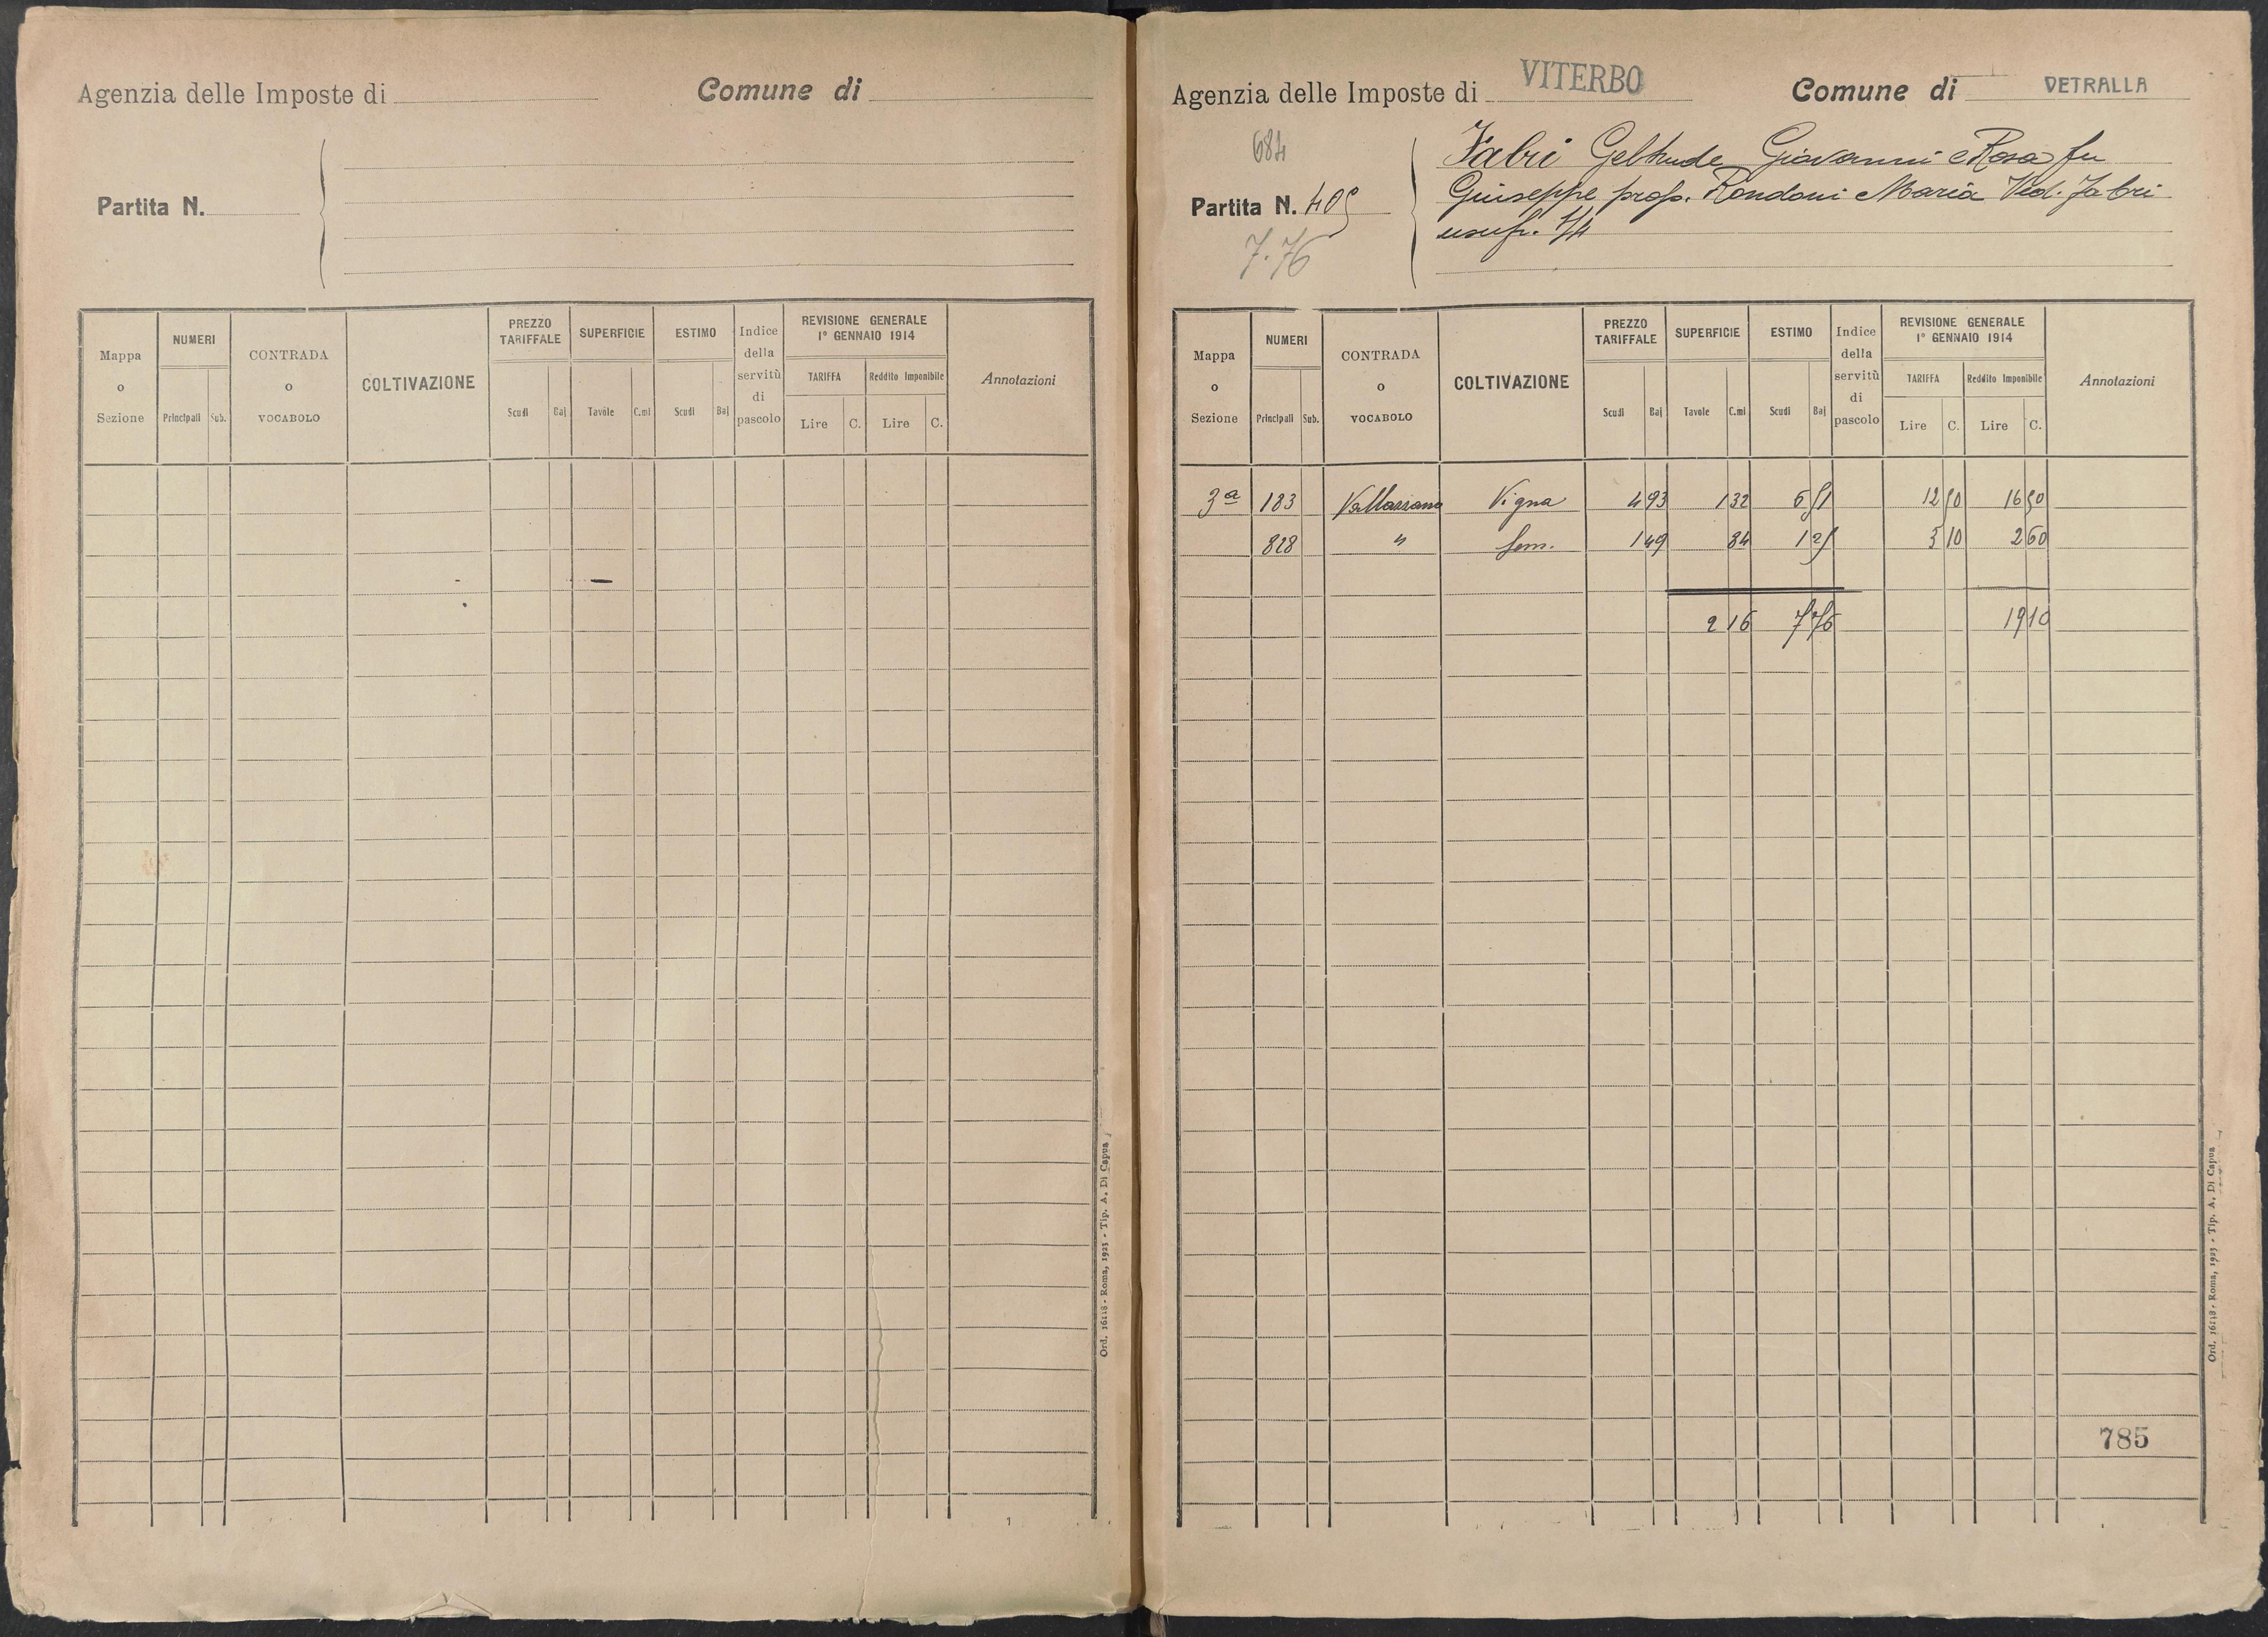 Agenzia delle Imposte di Comune di
Partita N.
Mappa o Sezione
NUMERI
Principali Sub.
CONTRADA o VOCABOLO
COLTIVAZIONE
PREZZO TARIFFALE
Scudi Baj
SUPERFICIE
Tavole C.mi
ESTIMO
Scudi Baj
Indice della servitù di pascolo
REVISIONE GENERALE
1° GENNAIO 1914
TARIFFA Reddito Imponibile
Lire C. Lire C.
Annotazioni
Ord. 16118 - Roma, 1925 - Tip. A. Di Capua
Agenzia delle Imposte di VITERBO Comune di VETRALLA
684
Partita N. 405
7.76
Fabri Geltrude Giovanni e Rosa fu
Giuseppe prop. Rondoni Maria Ved. Fabri
usufr. 1/4
Mappa o Sezione
NUMERI
Principali Sub.
CONTRADA o VOCABOLO
COLTIVAZIONE
PREZZO TARIFFALE
Scudi Baj
SUPERFICIE
Tavole C.mi
ESTIMO
Scudi Baj
Indice della servitù di pascolo
REVISIONE GENERALE
1° GENNAIO 1914
TARIFFA Reddito Imponibile
Lire C. Lire C.
Annotazioni
3ª 183 Vigna 4 93 1 32 6 51 12 50 16 50
828 " Sem. 1 49 84 1 25 3 10 2 60
2 16 7 76 19 10
785
Ord. 16118 - Roma, 1925 - Tip. A. Di Capua